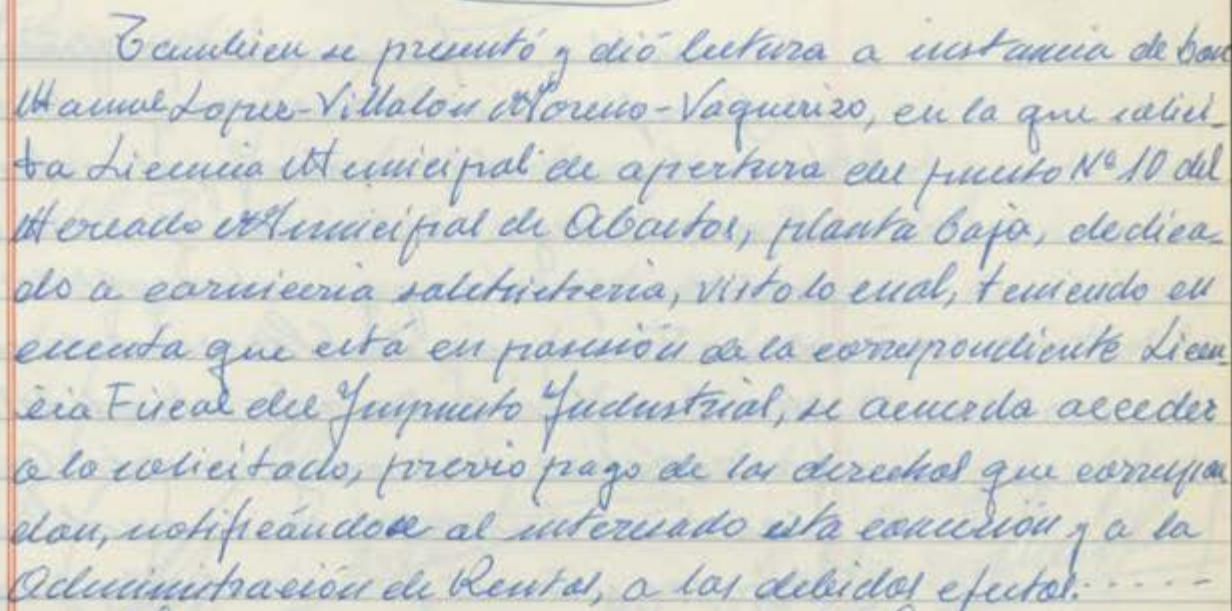 Tambien se presentó y dió lectura a instancia de Don
Manuel Lopez-Villalón Moreno-Vaquerizo, en la que solici-
ta Licencia Municipal de apertura del puesto Nº 10 del
Mercado Municipal de Abastos, planta baja, dedica-
do a carniceria salchicheria, visto lo cual, teniendo en
cuenta que está en posesión de la correspondiente Licen-
cia Fiscal del Impuesto Industrial, se acuerda acceder
a lo solicitado, previo pago de los derechos que correspon
dan, notificándose al interesado esta concesión y a la
Administración de Rentas, a los debidos efectos. - - - -